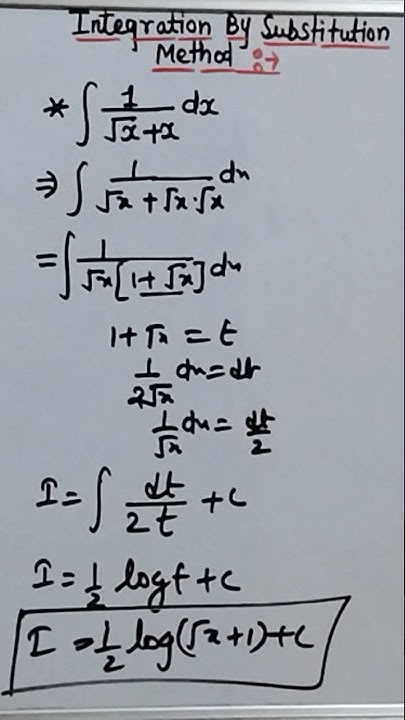 Integration By Substitution
Method :→
* ∫ 1/(√x+x) dx
⇒ ∫ 1/(√x + √x·√x) dx
= ∫ 1/(√x[1+√x]) dx
1+√x = t
1/(2√x) dx = dt
1/√x dx = dt/2
I = ∫ dt/(2t) + c
I = 1/2 log t + c
I = 1/2 log(√x+1)+c